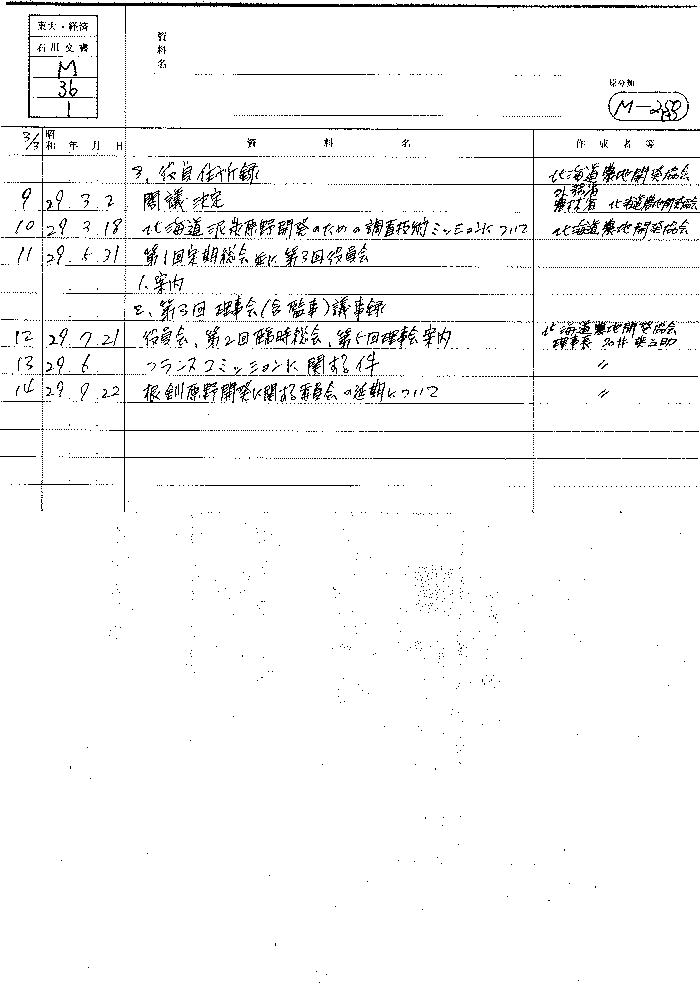 東大・経済
石川文書
M
36
1
資料名
原分類
M-250
3/3 昭和 年 月 日 資料名 作成者等
3. 役員住所録 北海道農地開発協会
9 29 3 2 閣議決定 外務省 農林省 北海道農地開発協会
10 29 3 18 北海道泥炭原野開発のための調査技術ミッションについて 北海道農地開発協会
11 29 5 31 第1回定期総会並に第3回役員会
1. 案内
2. 第3回理事会(含監事)議事録
12 29 7 21 役員会、第2回臨時総会、第5回理事会案内 北海道農地開発協会 理事長
13 29 6 フランスコミッションに関する件 〃
14 29 9 22 根釧原野開発に関する委員会の延期について 〃